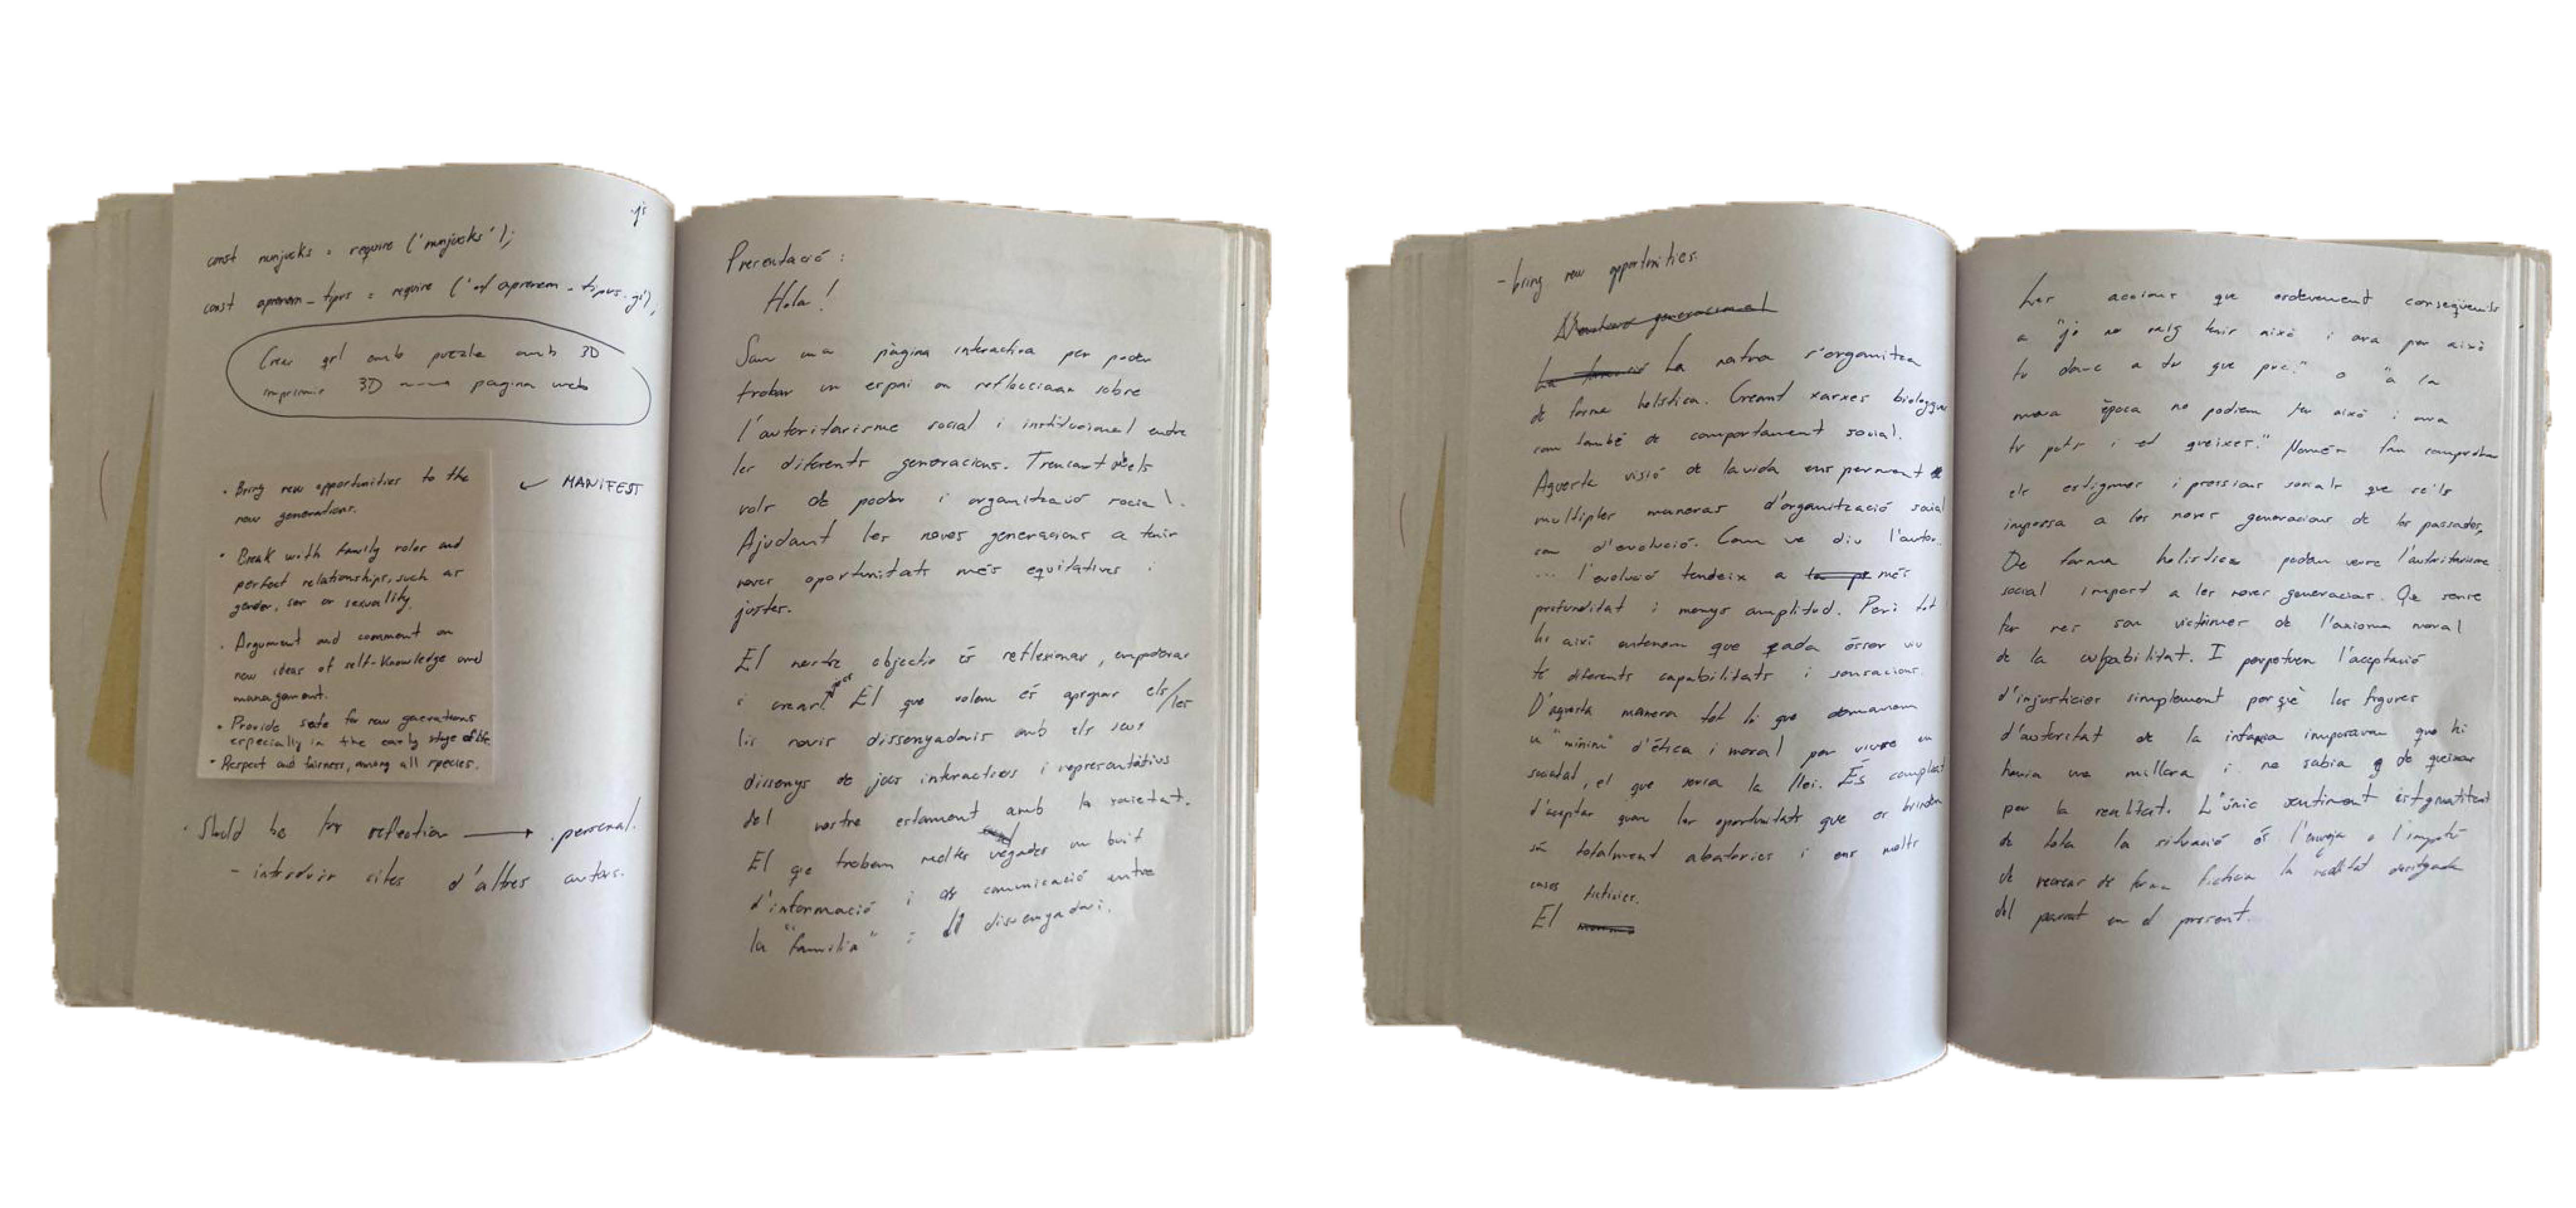 .js
const nunjucks = require ('nunjucks');
const aprenem_tipus = require ('aprenem_tipus.js');
Crear amb puzzle amb 3D
imprimir 3D pagina web
• Bring new opportunities to the
new generations.
← MANIFEST
• Break with family roles and
perfect relationships, such as
gender, sex or sexuality.
• Argument and comment on
new ideas of self-knowledge and
management.
• Provide safe for new generations
especially in the early stage of life
• Respect and fairness, among all species.
• Should be for reflection → personal.
- introduir cites d'altres autors.
Presentació:
Hola!
Som una pàgina interactiva per poder
trobar un espai on reflexionar sobre
l'autoritarisme social i institucional entre
les diferents generacions. Trencant els
rols de poder i organització social.
Ajudant les noves generacions a tenir
noves oportunitats més equitatives i
justes.
El nostre objectiu és reflexionar, empoderar
i crear. El que volem és apropar els/les
lis novis dissenyadoris amb els seus
dissenys de jocs interactius i representatius
del nostre estament amb la societat.
El que trobem moltes vegades un buit
d'informació i de comunicació entre
la "familia" i dissenyadori.
- bring new opportunities.
generacional
La natura s'organitza
de forma holistica. Creant xarxes biologiques
com també de comportament social.
Aquesta visió de la vida ens permet
multiples maneres d'organització social
com d'evolució. Com ve diu l'autor..
... l'evolució tendeix a més
profunditat i menys amplitud. Però tot
hi així entenem que cada ésser viu
té diferents capabilitats i sensacions.
D'aquesta manera tot lo que demanem
u "minim" d'ètica i moral per viure en
societat, el que seria la llei. És complicat
d'aceptar quan les oportunitats que es brinden
són totalment aleatories i ens molts
casos ficticies.
El
Les accions que esdevenen conseqüents
a "jo no vaig tenir això i ara per això
tu dono a tu que puc." o "a la
meva època no podiem fer això i ara
tu pots i et queixes." Només fan comprovar
els estigmes i pressions socials que se'ls
imposa a les noves generacions de les passades,
De forma holistica podem veure l'autoritarisme
social impost a les noves generacions. Que sense
fer res son víctimes de l'axioma moral
de la culpabilitat. I perpetuen l'aceptació
d'injusticies simplement perquè les figures
d'autoritat de la infancia imposaven que hi
havia una millora i no sabia de queixar
per la realitat. L'únic sentiment estigmatitzat
de tota la situació és l'enveja o l'impuls
de recrear de forma ficticia la realitat desitjada
del passat en el present.